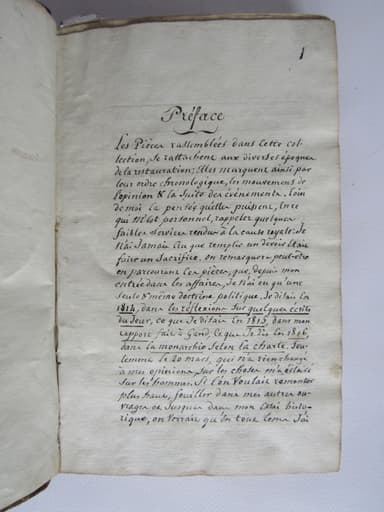 1
Préface
Les Pièces rassemblées dans cette col-
lection, se rattachent aux diverses époques
de la restauration; Elles marquent ainsi par
leur ordre chronologique, les mouvemens de
l'opinion & la suite des événemens. loin
de moi la pensée qu'elles puissent, en ce
qui m'est personnel, rappeler quelques
faibles services rendus à la cause royale: Je
n'ai jamais cru que remplir un devoir c'était
faire un sacrifice. on remarquera peut-être
en parcourant ces pièces, que, depuis mon
entrée dans les affaires, je n'ai eu qu'une
seule & même doctrine politique. Je disais en
1814, dans les réflexions sur quelques écrits
du Jour, ce que je disais en 1815, dans mon
rapport fait à Gand, ce que j'ai dit en 1816,
dans la monarchie selon la charte. Seu-
lement le 20 mars, qui n'a rien changé
à mes opinions sur les choses m'a éclairé
sur les hommes. Si l'on voulait remonter
plus haut, fouiller dans mes autres ou-
vrages et jusques dans mon Essai histo-
rique, on verrait qu'en tout tems j'ai